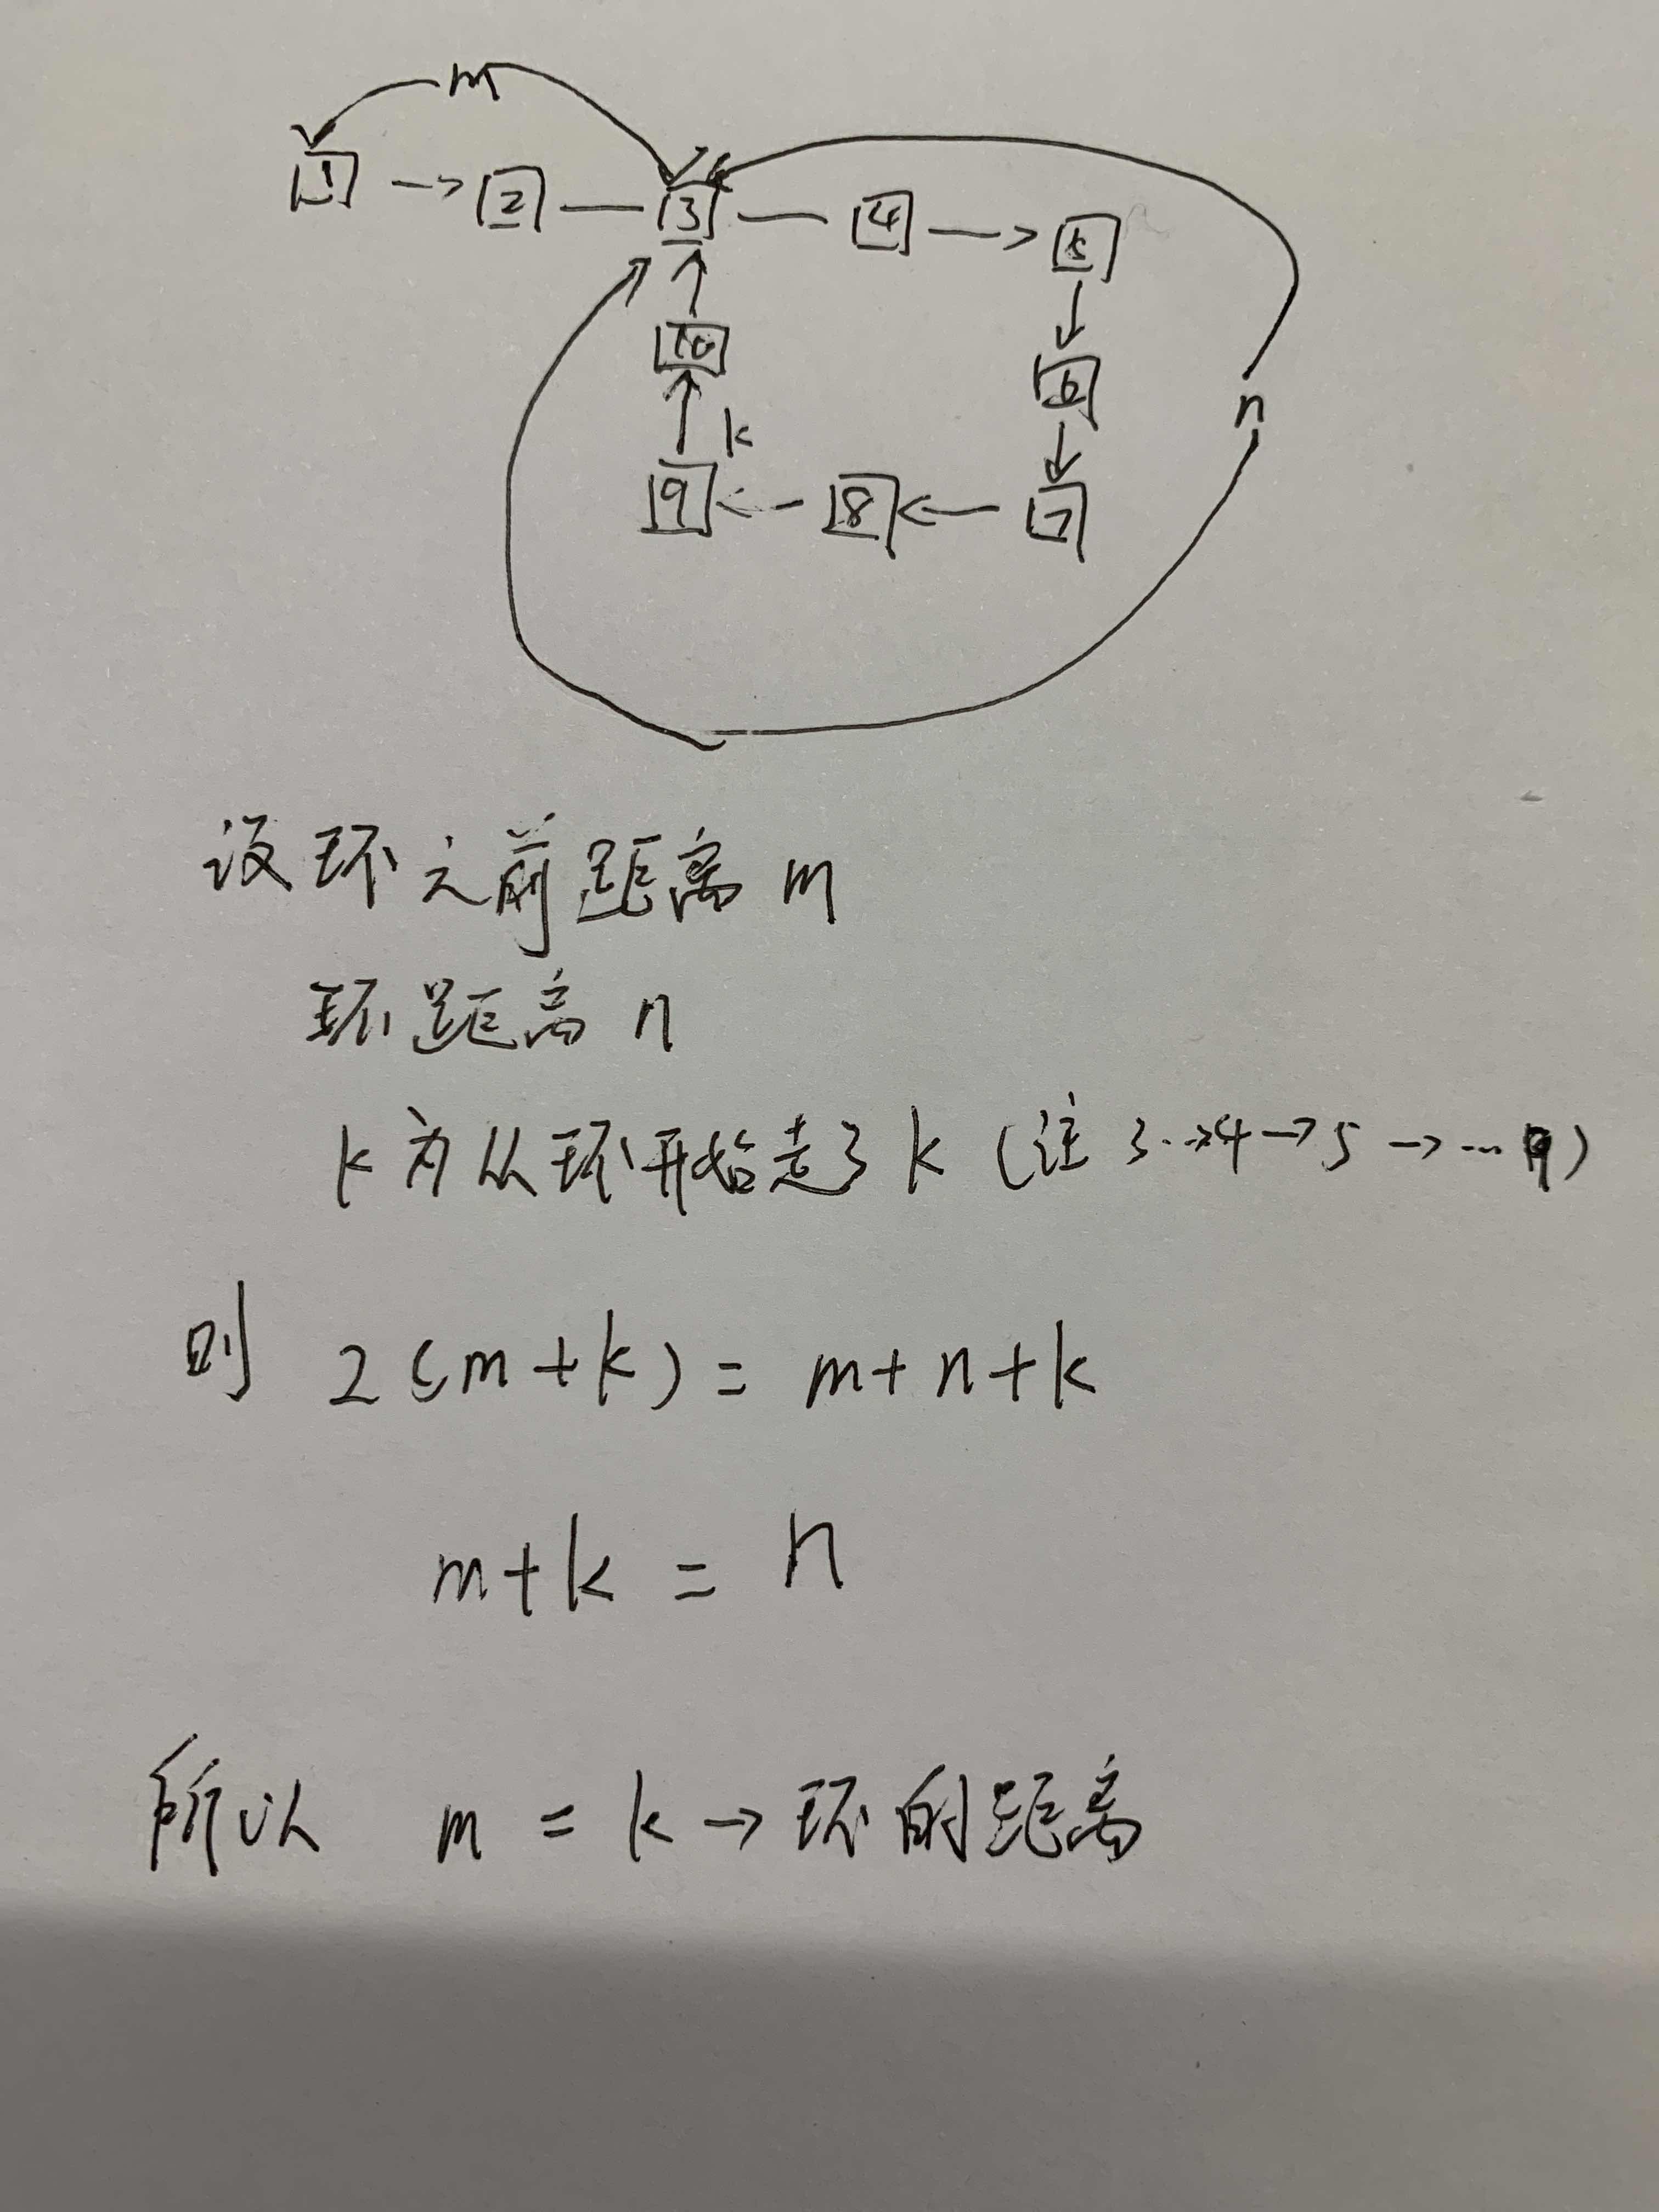 m
1 → 2 — 3 — 4 → 5
10
6
n
k
9 ← 8 ← 7
设环之前距离 m
环距离 n
k 为从环开始走了 k (注 3→4→5→…9)
则 2(m+k) = m+n+k
m+k = n
所以 m = k → 环的距离